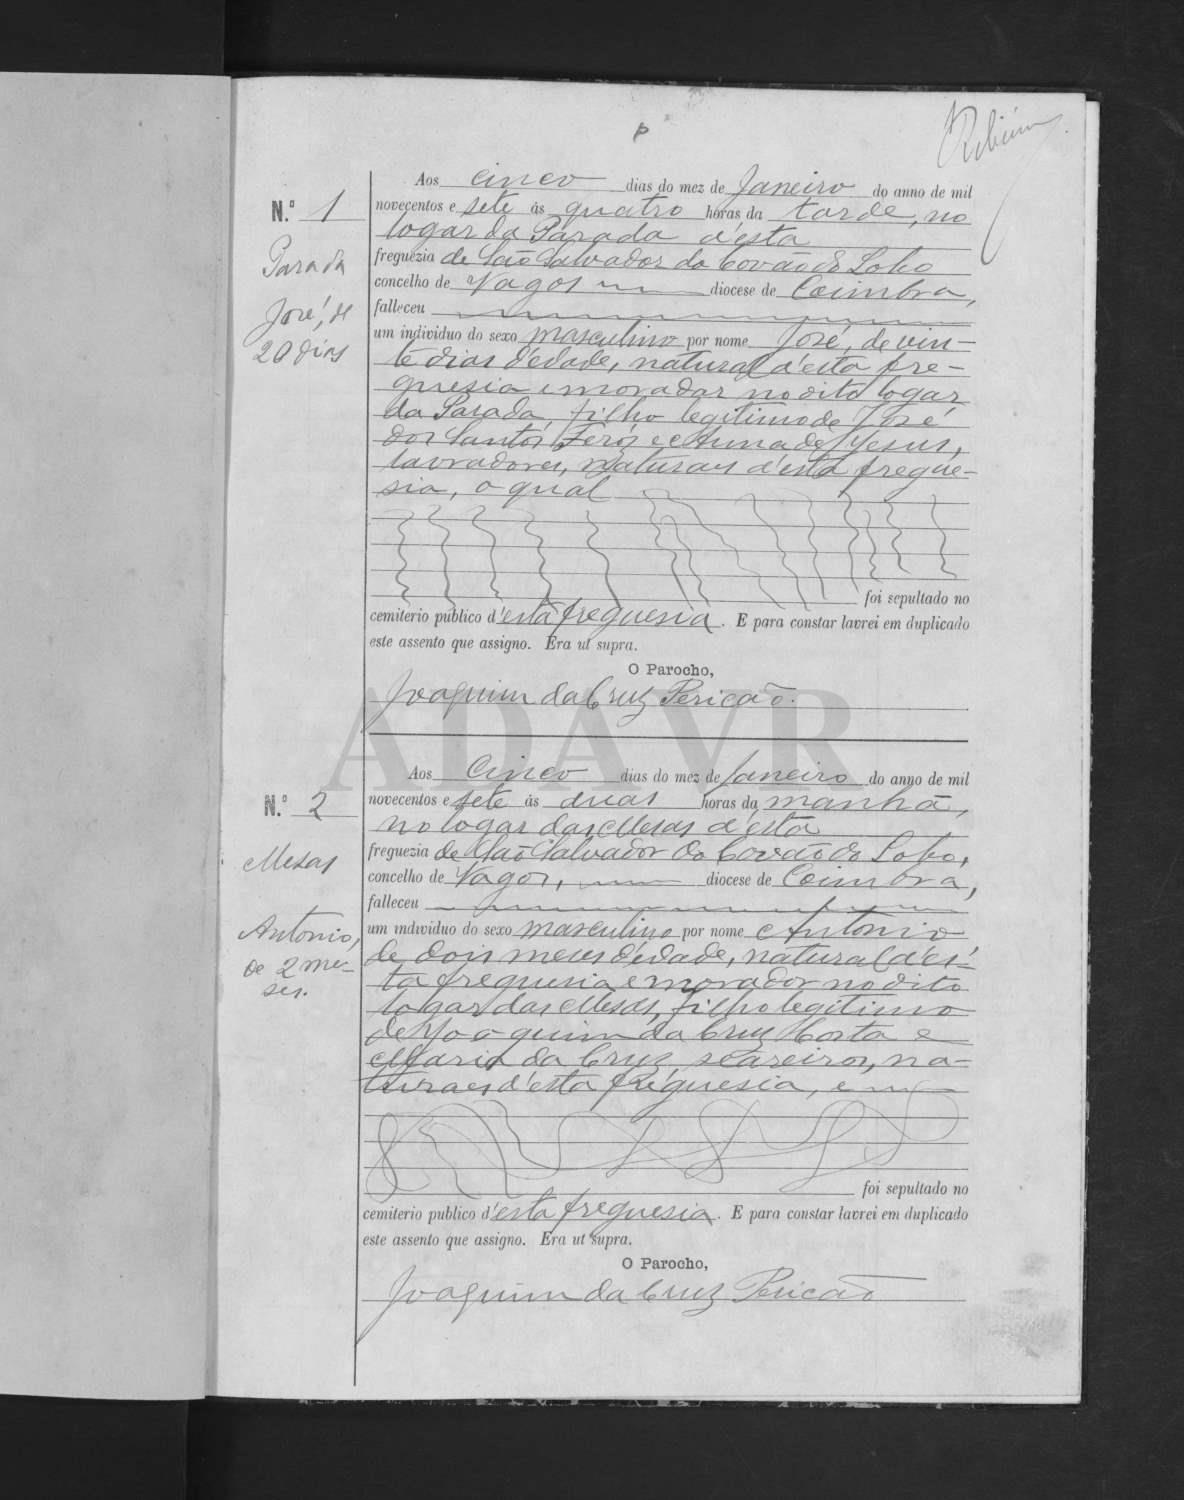 Ribeiro
Aos cinco dias do mez de Janeiro do anno de mil
N.º 1
novecentos e sete ás quatro horas da tarde, no
logar da Parada d'esta
freguezia de São Salvador do Covão do Lobo
Parada
concelho de Vagos diocese de Coimbra,
falleceu
José, de
20 dias
um individuo do sexo masculino por nome José, de vin-
te dias d'edade, natural d'esta fre-
guesia e morador no dito logar
da Parada, filho legitimo de José
dos Santos Feróz e Anna de Jesus,
lavradores, naturaes d'esta fregue-
sia, o qual
foi sepultado no
cemiterio publico d'esta freguesia. E para constar lavrei em duplicado
este assento que assigno. Era ut supra.
O Parocho,
Joaquim da Cruz Pericão.
ADAVR
Aos Cinco dias do mez de Janeiro do anno de mil
N.º 2
novecentos e sete ás duas horas da manhã,
no logar das Mesas d'esta
freguezia de São Salvador do Covão do Lobo,
Mesas
concelho de Vagos, diocese de Coimbra,
falleceu
Antonio,
de 2 me-
ses.
um individuo do sexo masculino por nome Antonio
de dois meses d'edade, natural d'es-
ta freguesia e morador no dito
logar das Mesas, filho legitimo
de Joaquim da Cruz Costa e
Maria da Cruz, seareiros, na-
turaes d'esta freguesia, e
foi sepultado no
cemiterio publico d'esta freguesia. E para constar lavrei em duplicado
este assento que assigno. Era ut supra.
O Parocho,
Joaquim da Cruz Pericão